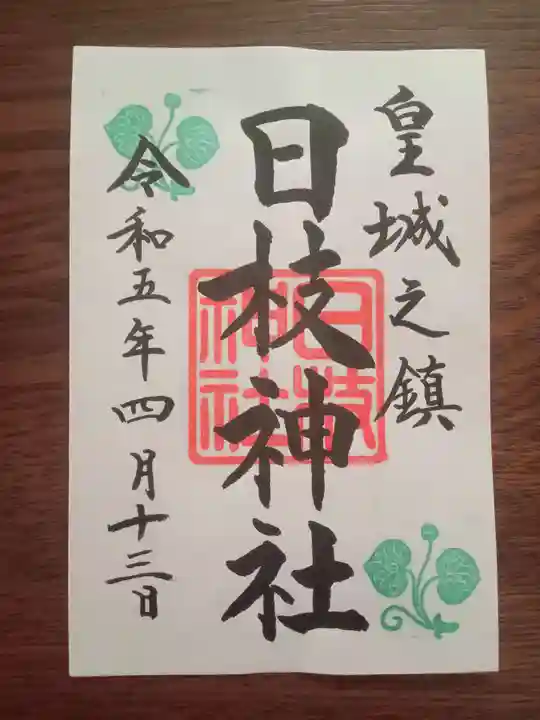 皇城之鎮
日枝神社
日枝
神社
令和五年四月十三日